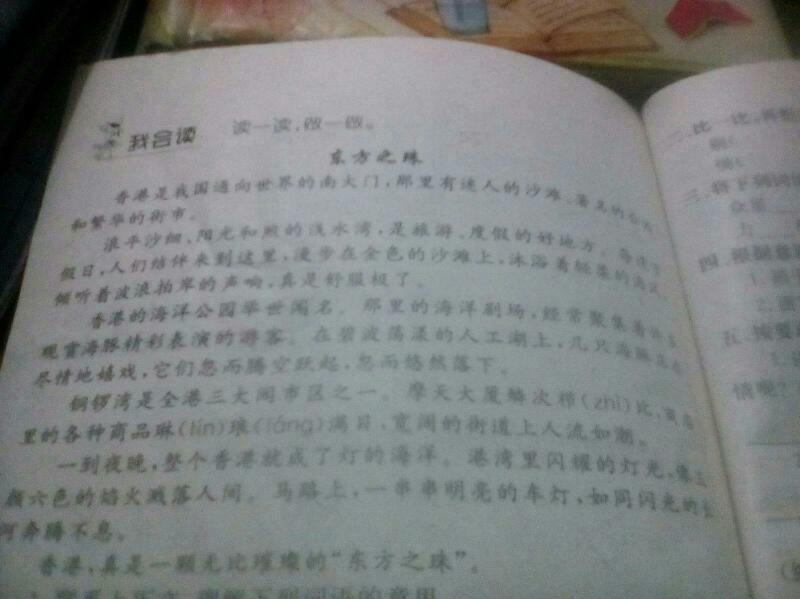 我会读 读一读,做一做。
东方之珠
香港是我国通向世界的南大门,那里有迷人的沙滩、著名的公园
和繁华的街市。
浪平沙细、阳光和煦的浅水湾,是旅游、度假的好地方。每逢节
假日,人们结伴来到这里,漫步在金色的沙滩上,沐浴着轻柔的海风,
倾听着波浪拍岸的声响,真是舒服极了。
香港的海洋公园举世闻名。那里的海洋剧场,经常聚集着许多
观赏海豚精彩表演的游客。在碧波荡漾的人工湖上,几只海豚正在
尽情地嬉戏,它们忽而腾空跃起,忽而悠然落下。
铜锣湾是全港三大闹市区之一。摩天大厦鳞次栉(zhì)比,商店
里的各种商品琳(lín)琅(láng)满目,宽阔的街道上人流如潮。
一到夜晚,整个香港就成了灯的海洋。港湾里闪耀的灯光,像五
颜六色的焰火溅落人间。马路上,一串串明亮的车灯,如同闪光的长
河奔腾不息。
香港,真是一颗无比璀璨的“东方之珠”。
二、比一比,再
三、将下列词
四、根据意
1.
2.
五、按要
1.
情呢?